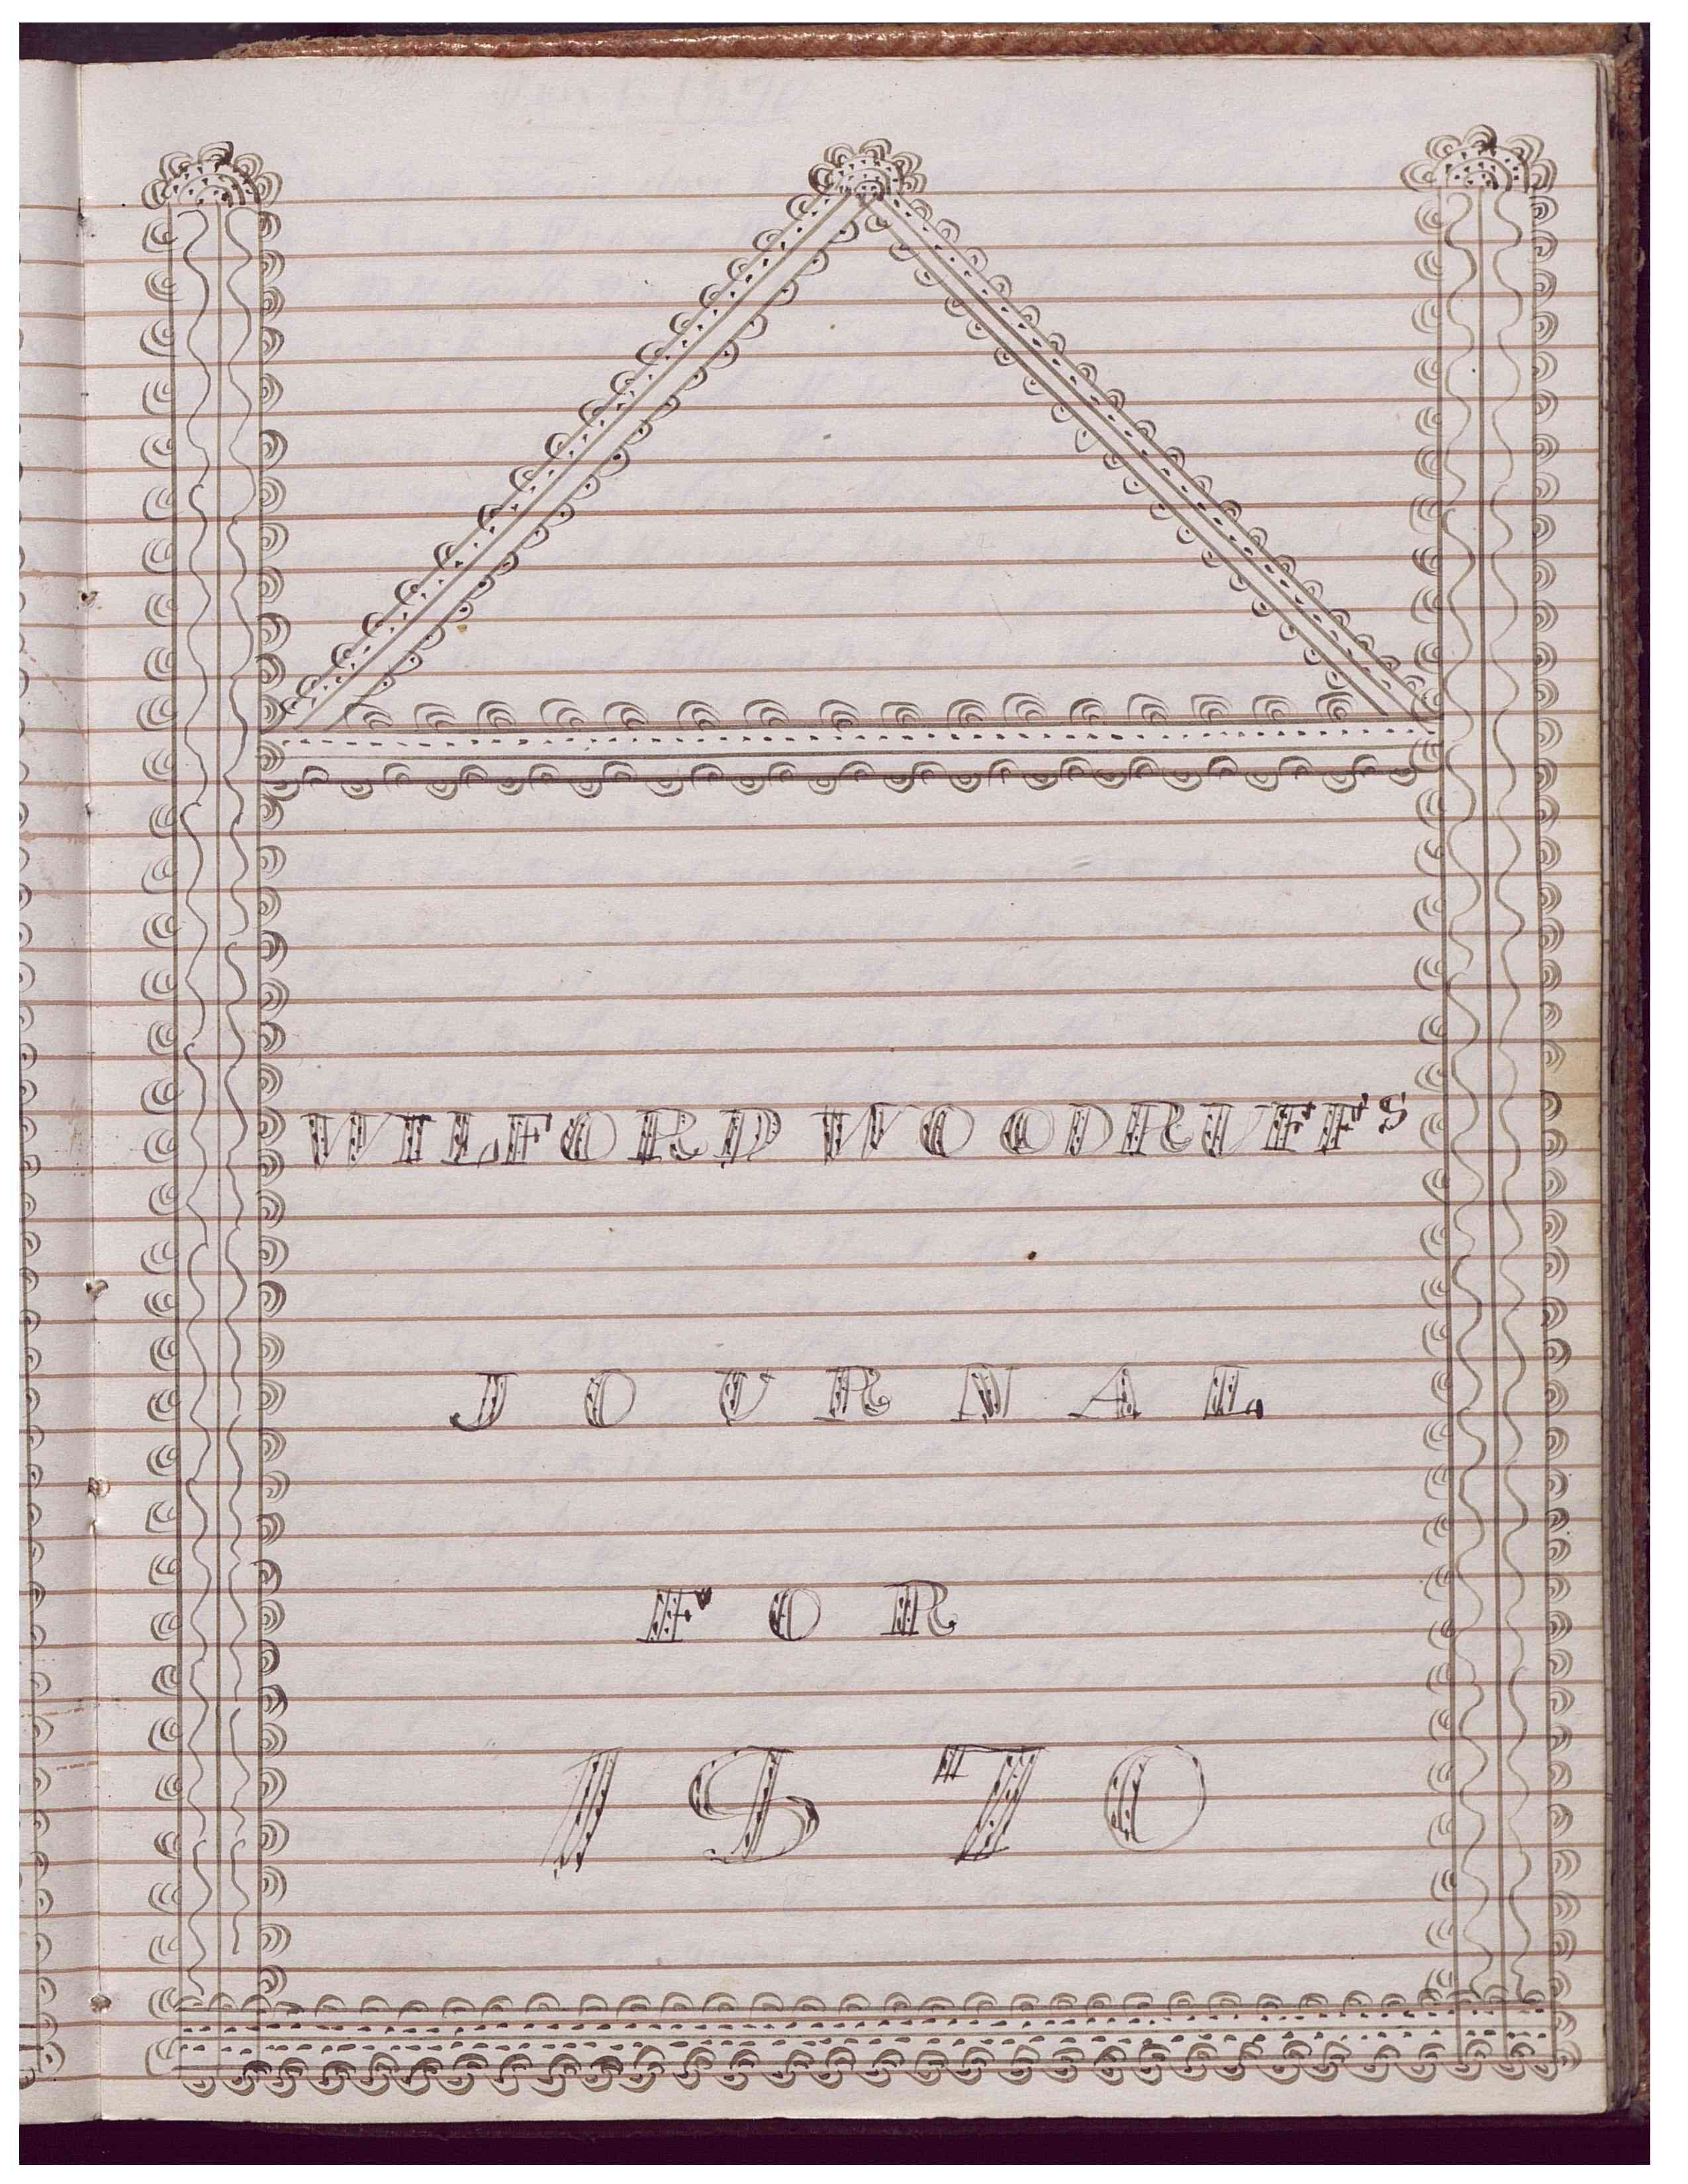 WILFORD WOODRUFF'S
JOURNAL
FOR
1870